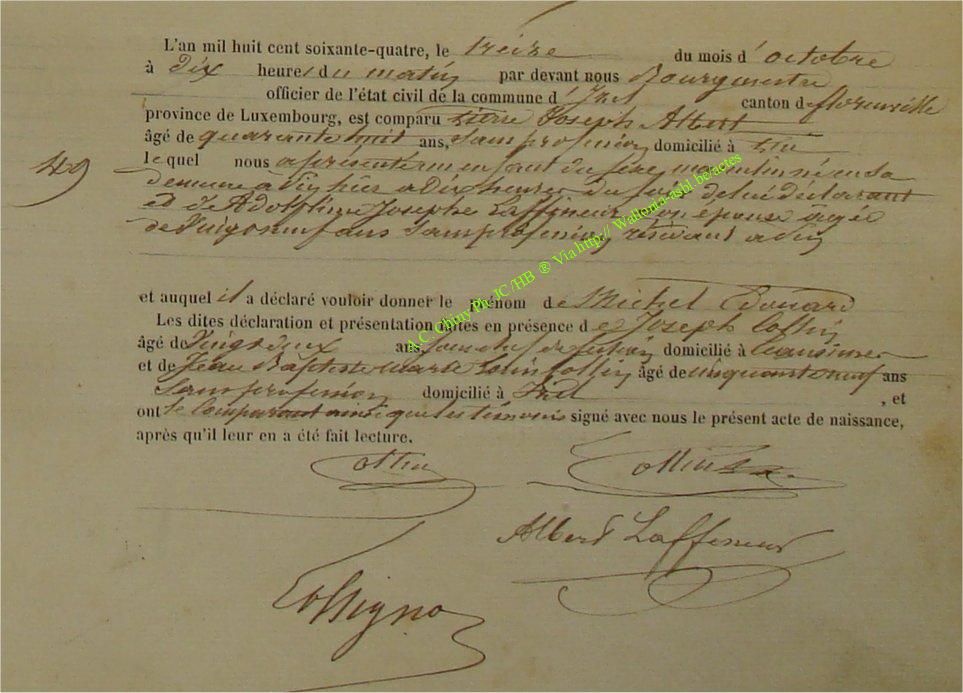 L'an mil huit cent soixante-quatre, le treize du mois d'octobre
à Dix heures du matin par devant nous Bourgmestre
officier de l'état civil de la commune d'Izel canton de florenville
province de Luxembourg, est comparu Pierre Joseph Albert
âgé de quarante huit ans, sans profession domicilié à
lequel nous a présenté un enfant du sexe masculin né en sa
demeure à hier à dix heures du soir de lui déclarant
et de Adolphine Josephe Laffineur son épouse agée
de vingt neuf ans sans profession, résidant à
49
et auquel il a déclaré vouloir donner le prénom de Michel Edouard
Les dites déclaration et présentation faites en présence de Joseph Collin
âgé de vingt deux ans, domicilié à
et de Jean Baptiste Marie Collin âgé de cinquante neuf ans
sans profession domicilié à Izel, et
ont le comparant ainsi que les témoins signé avec nous le présent acte de naissance,
après qu'il leur en a été fait lecture.
Collin Collin
Albert Laffineur
A.C. Chiny Ph. JC /HB ® Via http:// Wallonia-asbl.be/actes